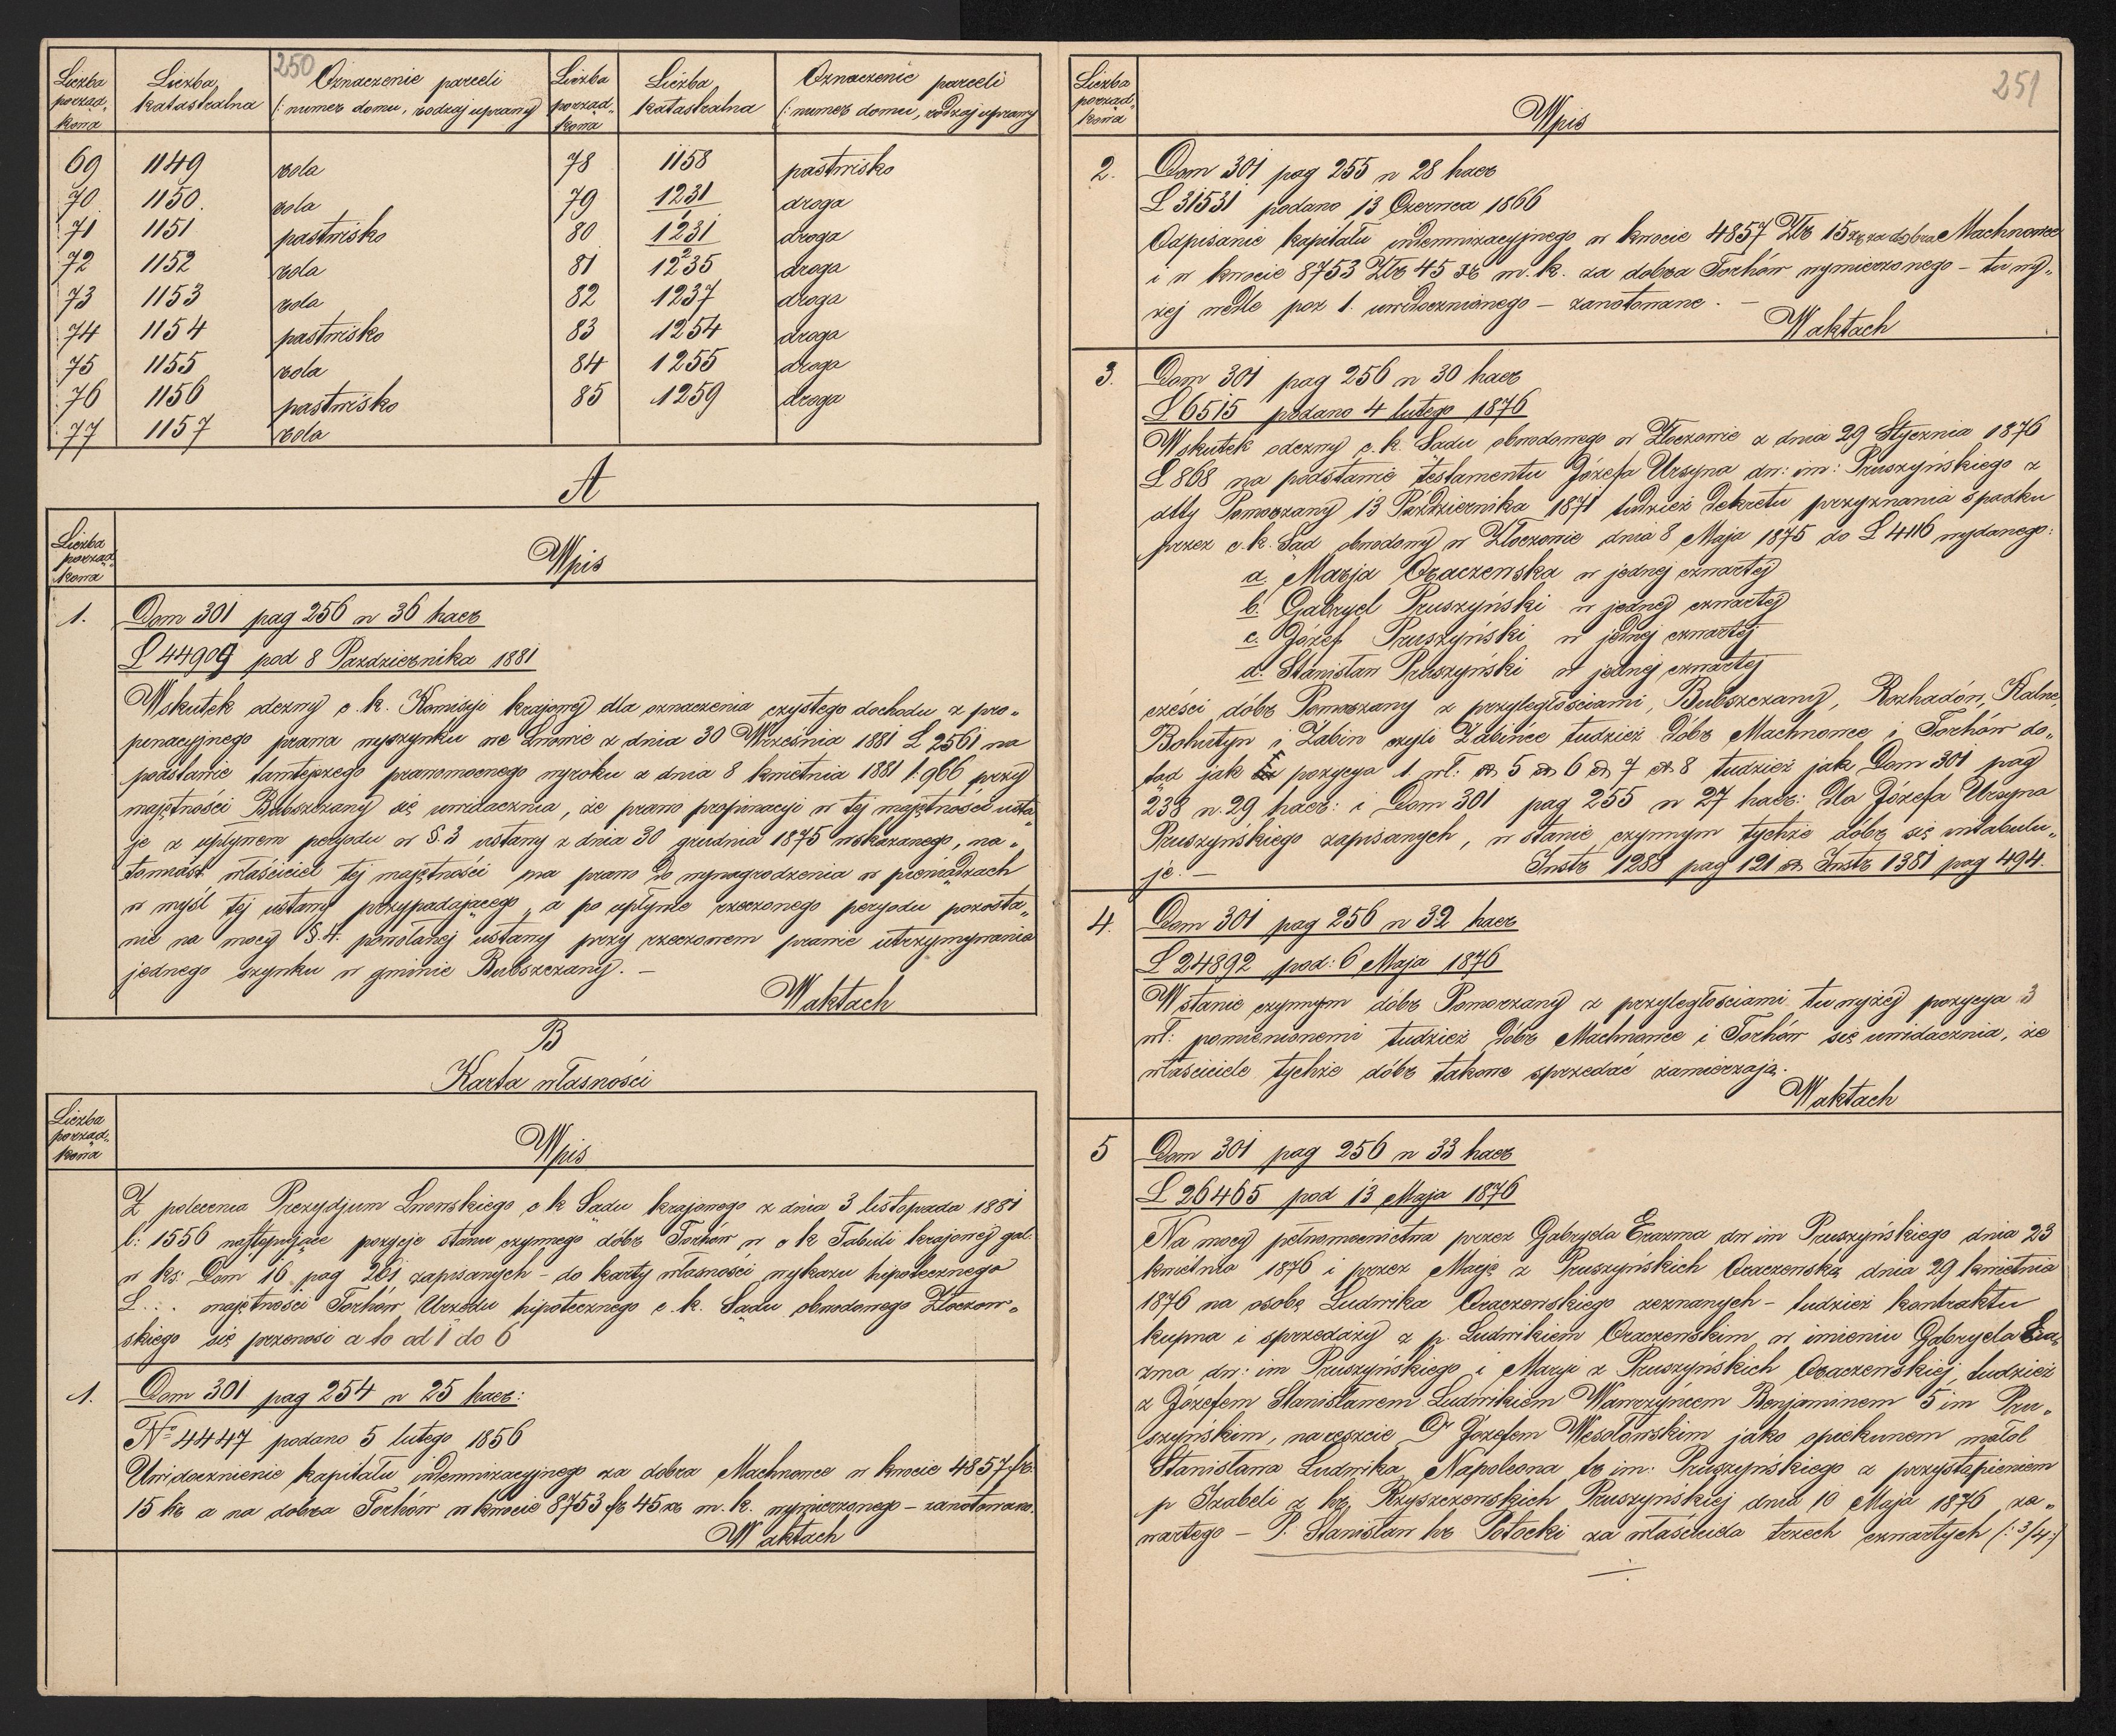 250
Liczba porząd- kowa | Liczba katastralna | Oznaczenie parceli (: numer domu, rodzaj uprawy | Liczba porząd- kowa | Liczba katastralna | Oznaczenie parceli (: numer domu, rodzaj uprawy
69 1149 rola 78 1158 pastwisko
70 1150. rola 79 1231/1 droga
71 1151 pastwisko 80 1231/2 droga
72 1152 rola 81 1235 droga
73 1153 rola 82 1237 droga
74 1154 pastwisko 83 1254 droga
75 1155 rola 84 1255 droga
76 1156 pastwisko 85 1259 droga
77 1157 rola
A
Liczba porząd- kowa
Wpis
1. Dom 301 pag 256 n 36 haer
L 44909 pod 8 Pazdziernika 1881
Wskutek odezwy c. k. Komisyi krajowej dla oznaczenia czystego dochodu z pro„
pinacyjnego prawa wyszynku we Lwowie z dnia 30 Września 1881 L 2561 na
podstawie tamtejszego prawomocnego wyroku z dnia 8 kwietnia 1881 l: 966 przy
majętności Bubszczany się uwidacznia, że prawo propinacyi w tej majętności usta„
je z upływem peryodu w §. 3 ustawy z dnia 30 grudnia 1875 wskazanego, na„
tomiast właściciel tej majętności ma prawo do wynagrodzenia w pieniądzach
w myśl tej ustawy przypadającego, a po upływie rzeczonego peryodu pozosta„
nie na mocy §. 4. powołanej ustawy przy rzeczonem prawie utrzymywania
jednego szynku w gminie Bubszczany. —
W aktach
B
Karta własności
Liczba porząd- kowa
Wpis
Z polecenia Prezydjum Lwowskiego c k Sądu krajowego z dnia 3 listopada 1881
l: 1556 następujące pozycje stanu czynnego dóbr Torhów w c k Tabuli krajowej gal.
w ks: Dom 16 pag 261 zapisanych – do karty własności wykazu hipotecznego
L . . . majętności Torhów Urzędu hipotecznego c. k. Sądu obwodowego Złoczow„
skiego się przenosi a to od 1 do 6
1. Dom 301 pag 254 n 25 haer:
No 4447 podano 5 lutego 1856
Uwidocznienie kapitału indemnizacyjnego za dobra Machnowce w kwocie 4857 fr.
15 kr a na dobra Torhów w kwocie 8753 fr 45 xr m. k. wymierzonego – zanotowano.
W aktach
251
Liczba porząd- kowa
Wpis
2. Dom 301 pag 255 n 28 haer
L 31531 podano 13 Czerwca 1866
Odpisanie kapitału indemnizacyjnego w kwocie 4857 Złr 15 xr za dobra Machnowce
i w kwocie 8753 Złr 45 xr m. k. za dobra Torhów wymierzonego – tu wy„
żej wedle poz 1. uwidocznionego – zanotowane. —
W aktach
3. Dom 301 pag 256 n 30 haer
L 6515 podano 4 lutego 1876
Wskutek odezwy c. k. Sądu obwodowego w Złoczowie z dnia 29 Stycznia 1876
L 868 na podstawie testamentu Józefa Ursyna dw: im: Pruszyńskiego z
dtty Pomorzany 13 Października 1871 tudzież dekretu przyznania spadku
przez c. k. Sąd obwodowy w Złoczowie dnia 8 Maja 1875 do L 4116 wydanego:
a. Marja Oraczewska w jednej czwartej
b. Gabryel Pruszyński w jednej czwartej
c. Józef Pruszyński w jednej czwartej
d. Stanisław Pruszyński w jednej czwartej
części dóbr Pomorzany z przyległościami, Bubszczany, Rozhadów, Kalne,
Bohutyn i Żabin czyli Żabińce tudzież dóbr Machnowce i Torhów do„
tąd jak pozycya 1. wł: et 5 et 6 et 7 et 8 tudzież jak Dom 301 pag
238 n. 29 haer: i Dom 301 pag 255 n 27 haer: dla Józefa Ursyna
Pruszyńskiego zapisanych, w stanie czynnym tychże dóbr się intabulu„
je. — Instr 1288 pag 121 et Instr 1381 pag 494.
4. Dom 301 pag 256 n 32 haer
L 24892 pod: 6 Maja 1876
W stanie czynnym dóbr Pomorzany z przyległościami tu wyżej pozycya 3
wł: pomienionemi tudzież dóbr Machnowce i Torhów się uwidacznia, że
właściciele tychże dóbr takowe sprzedać zamierzają.
W aktach
5 Dom 301 pag 256 n 33 haer
L 26465 pod 13 Maja 1876
Na mocy pełnomocnictwa przez Gabryela Erazma dw im Pruszyńskiego dnia 23
kwietnia 1876 i przez Maryę z Pruszyńskich Oraczewską dnia 29 kwietnia
1876 na osobę Ludwika Oraczewskiego zeznanych – tudzież kontraktu
kupna i sprzedaży z p. Ludwikiem Oraczewskim w imieniu Gabryela Era„
zma dw: im Pruszyńskiego i Maryi z Pruszyńskich Oraczewskiej, tudzież
z Józefem Stanisławem Ludwikiem Wawrzyńcem Benjaminem 5 im Pru„
szyńskim, nareszcie Dr Józefem Wesołowskim jako opiekunem małol
Stanisława Ludwika Napoleona tr im: Pruszyńskiego z przystąpieniem
p Izabeli z hr. Rzyszczewskich Pruszyńskiej dnia 10 Maja 1876 za„
wartego – P. Stanisław hr Potocki za właściciela trzech czwartych (: 3/4 :)